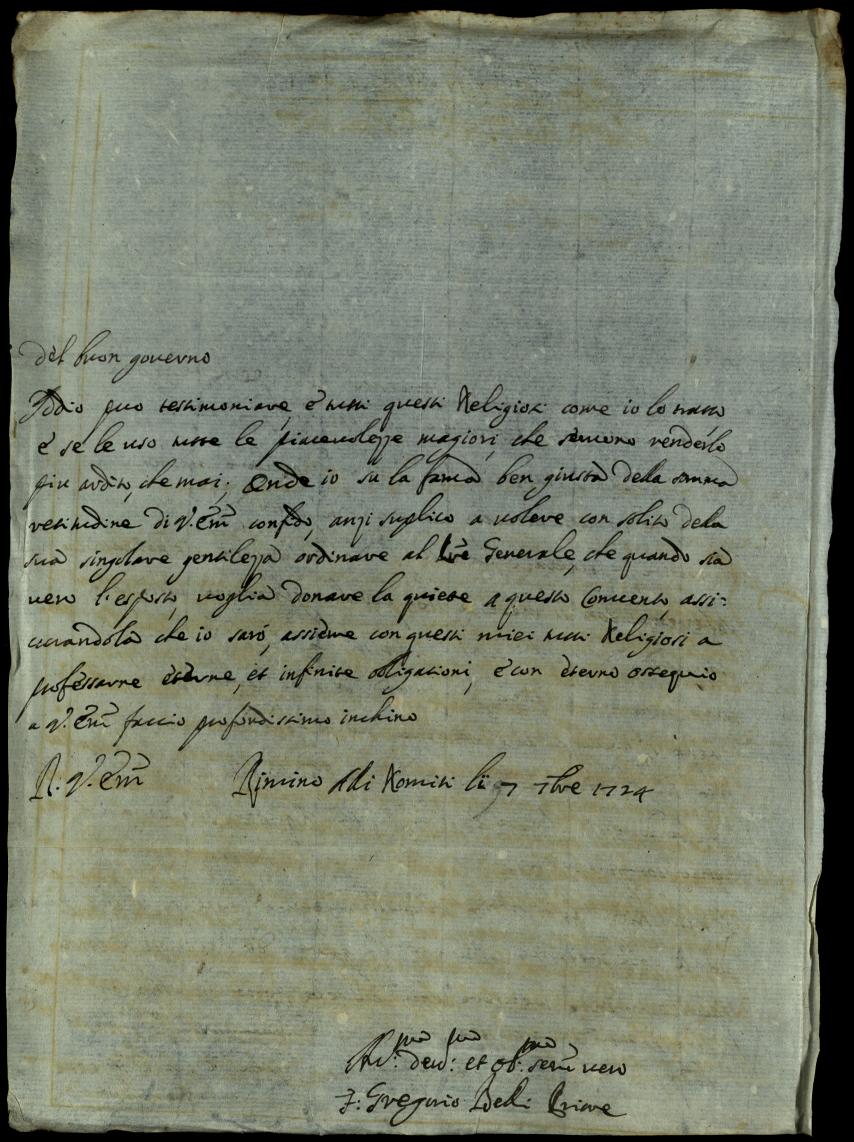 del buon governo
Iddio puo testimoniare, è tutti questi Religiosi come io lo tratto
è se le uso tutte le piacevolezze magiori, che servono renderlo
piu ardito, che mai; Onde io su la fama ben giusta della somma
retitudine di V. Em̃ confido, anzi suplico a volere con solito della
sua singolare gentilezza ordinare al Pr̃e Generale, che quando sia
vero l'esposto, voglia donare la quiete a questo Convento, assi:
curandola che io sarò, assieme con questi miei tutti Religiosi a
professarne eterne, et infinite obligationi, è con eterno ossequio
a V. Em̃ faccio profondissimo inchino
D. V. Em̃ Rimino Romiti li 7 7bre 1724
dev:mo et ob:mo serṽ vero
F: Gregorio Priore